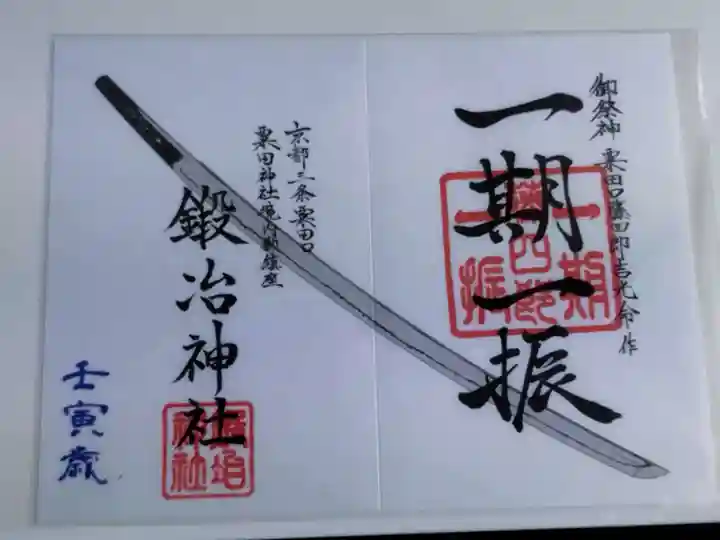 御祭神 粟田口藤四郎吉光命作
一期一振
京都三条粟田口
粟田神社境内御鎮座
鍛冶神社
壬寅歳
一期
藤四郎
一振
鍛冶
神社